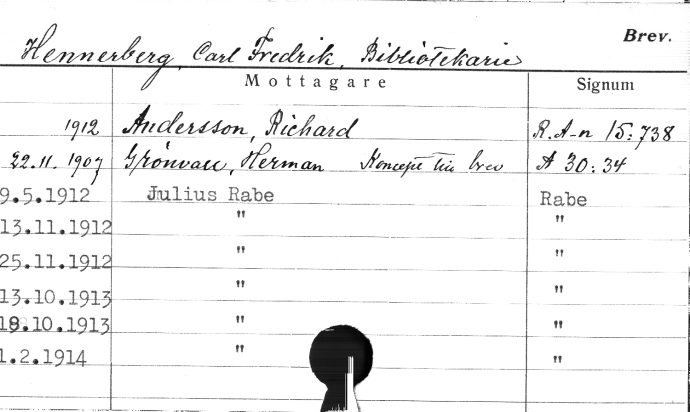 Brev.
Hennerberg, Carl Fredrik, Bibliotekarie
Mottagare Signum
1912 Andersson, Richard R.A-n 15:738
22.11.1907 Grönvall, Herman Koncept till brev A 30:34
9.5.1912 Julius Rabe Rabe
13.11.1912 " "
25.11.1912 " "
13.10.1913 " "
18.10.1913 " "
1.2.1914 " "